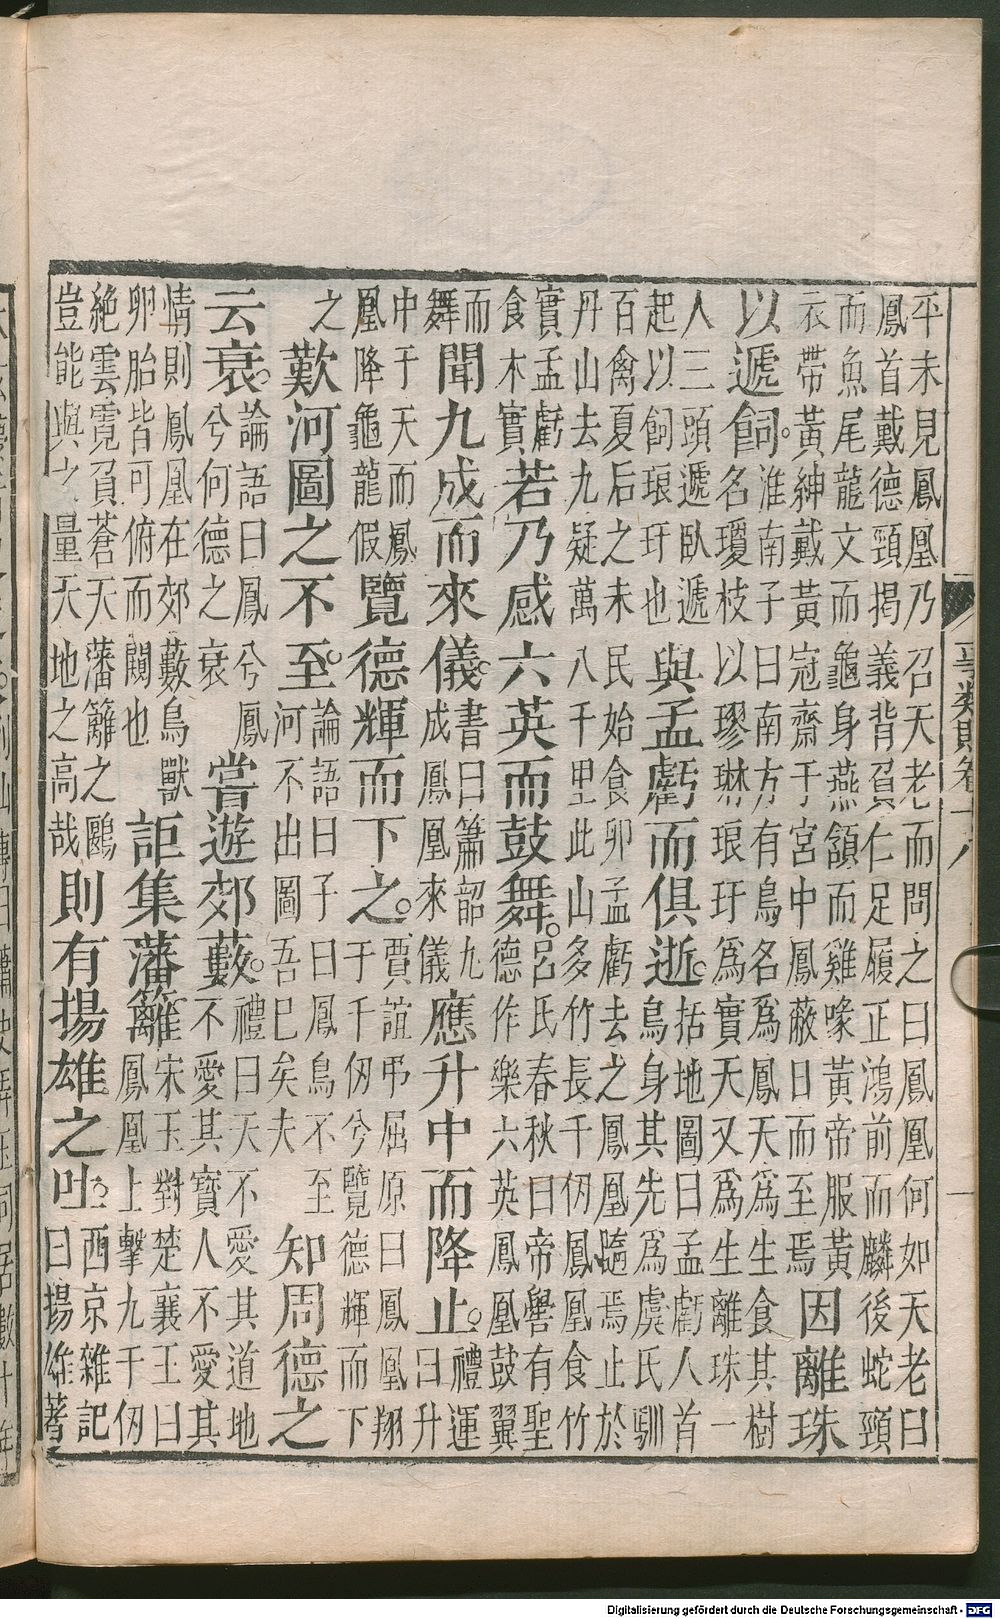 平未見鳳凰乃召天老而問之曰鳳凰何如天老曰
鳳首戴德頸揭義背負仁足履正鴻前而麟後蛇頸
而魚尾龍文而龜身燕頷而雞喙黃帝服黃
衣帶黃紳戴黃冠齋于宮中鳳蔽日而至焉
因離珠
以遞飼。
淮南子曰南方有鳥名為鳳天為生食其樹
名瓊枝以璆琳琅玕為實天又為生離珠一
人三頭遞臥遞
起以飼琅玕也
與孟虧而俱逝。
括地圖曰孟虧人首
鳥身其先為虞氏馴
百禽夏后之末民始食卵孟虧去之鳳凰隨焉止於
丹山去九疑萬八千里此山多竹長千仞鳳凰食竹
實孟虧
食木實
若乃感六英而鼓舞。
呂氏春秋曰帝嚳有聖
德作樂六英鳳凰鼓翼
而
舞
聞九成而來儀。
書曰簫韶九
成鳳凰來儀
應升中而降止。
禮運
曰升
中于天而鳳
凰降龜龍假
覽德輝而下之。
賈誼弔屈原曰鳳凰翔
于千仞兮覽德輝而下
之
歎河圖之不至。
論語曰子曰鳳鳥不至
河不出圖吾已矣夫
知周德之
云衰。
論語曰鳳兮鳳
兮何德之衰
嘗遊郊藪。
禮曰天不愛其道地
不愛其寶人不愛其
情則鳳凰在郊藪鳥獸
卵胎皆可俯而闚也
詎集藩籬
宋玉對楚襄王曰
鳳凰上擊九千仞
絕雲霓負蒼天藩籬之鷃
豈能與之量天地之高哉
則有揚雄之吐。
西京雜記
曰揚雄著
事類賦卷十八
一
Digitalisierung gefördert durch die Deutsche Forschungsgemeinschaft - DFG